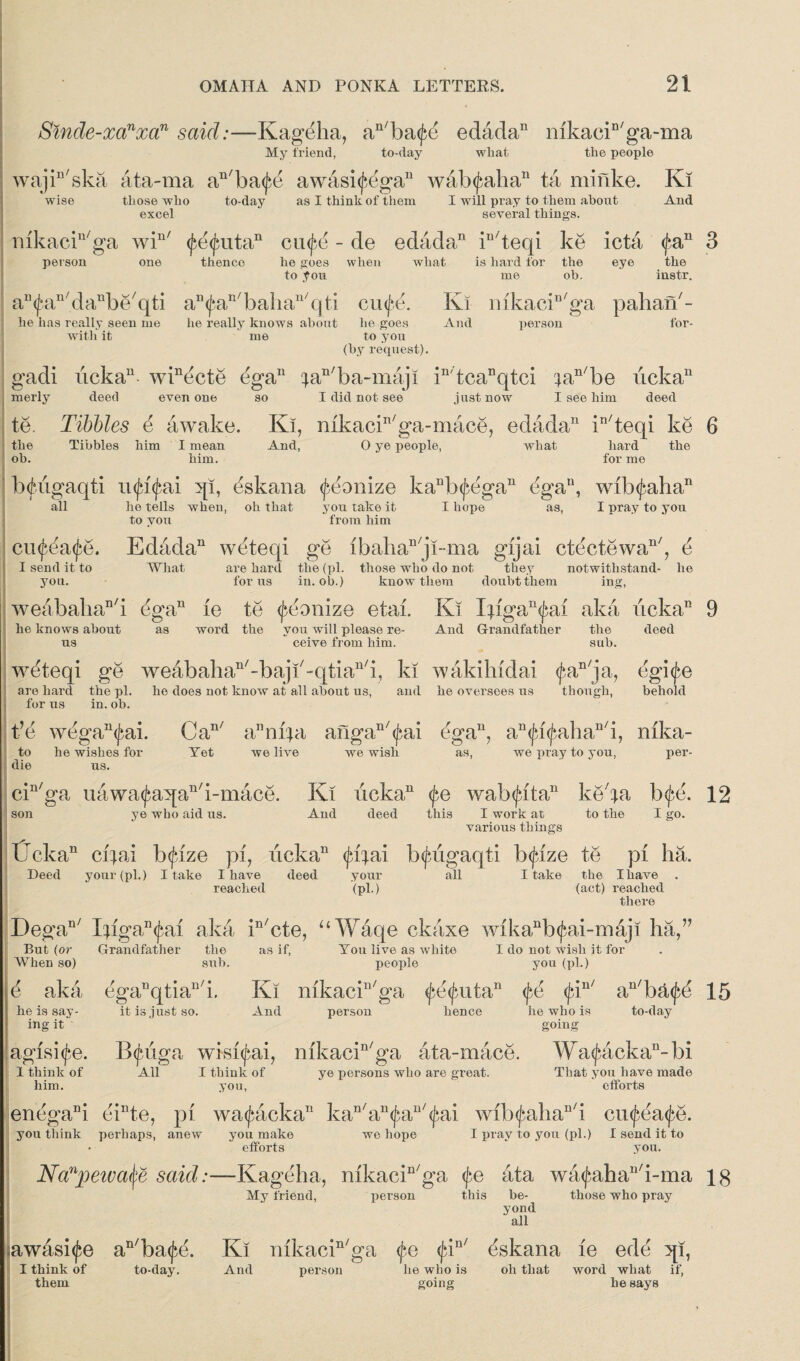 OMAHA AND PONKA LETTERS. 21
Sĭnde-xaⁿxaⁿ said:—Kagéha, aⁿ′ba¢é edádaⁿ níkaciⁿ′ga-ma
My friend, to-day what the people
wajiⁿ′skă áta-ma aⁿ′ba¢é awási¢égaⁿ wáb¢ahaⁿ tá miñke. Kĭ
wise those who excel to-day as I think of them I will pray to them about several things. And
níkaciⁿ′ga wiⁿ′ ¢é¢utaⁿ cu¢é - de edádaⁿ iⁿ′teqi kĕ ictá ¢aⁿ 3
person one thence he goes to you when what is hard for me the ob. eye the instr.
aⁿ¢aⁿ′daⁿbĕ′qti aⁿ¢aⁿ′bahaⁿ′qti cu¢é. Kĭ níkaciⁿ′ga pahañ′-
he has really seen me with it he really knows about me he goes to you (by request). And person for-
gadi úckaⁿ wiⁿécte égaⁿ ʇaⁿ′ba-májĭ iⁿ′tcaⁿqtci ʇaⁿ′be úckaⁿ
merly deed even one so I did not see just now I see him deed
tĕ. Tibbles é áwake. Kĭ, níkaciⁿ′ga-mácĕ, edádaⁿ iⁿ′teqi kĕ 6
the ob. Tibbles him I mean him. And, O ye people, what hard for me the
b¢úgaqti u¢í¢ai ʞĭ, éskana ¢éonize kaⁿb¢égaⁿ égaⁿ, wíb¢ahaⁿ
all he tells to you when, oh that you take it from him I hope as, I pray to you
cu¢éa¢ĕ. Edádaⁿ wéteqi gĕ íbahaⁿ′jĭ-ma gíjai ctéctĕwaⁿ′, é
I send it to you. What are hard for us the (pl. in. ob.) those who do not know them they doubt them notwithstand- ing, he
weábahaⁿ′i égaⁿ íe tĕ ¢éonize etaí. Kĭ Iʇígaⁿ¢aí aká úckaⁿ 9
he knows about us as word the you will please re- ceive from him. And Grandfather the sub. deed
wéteqi gĕ weábahaⁿ′-bajĭ′-qtiaⁿ′i, kĭ wákihídai ¢aⁿ′ja, égi¢e
are hard for us the pl. in. ob. he does not know at all about us, and he oversees us though, behold
t’é wégaⁿ¢ai. Caⁿ′ aⁿníʇa añgaⁿ′¢ai égaⁿ, aⁿ¢í¢ahaⁿ′i, níka-
to die he wishes for us. Yet we live we wish as, we pray to you, per-
ciⁿ′ga uáwa¢aʞaⁿ′i-mácĕ. Kĭ úckaⁿ ¢e wab¢ítaⁿ kĕ′ʇa b¢é. 12
son ye who aid us. And deed this I work at various things to the I go.
Úckaⁿ cíʇai b¢íze pí, úckaⁿ ¢íʇai b¢úgaqti b¢íze tĕ pí hă.
Deed your (pl.) I take I have reached deed your (pl.) all I take the (act) I have reached there .
Degaⁿ′ Iʇígaⁿ¢aí aká iⁿ′cte, “Wáqe ckáxe wíkaⁿb¢ai-májĭ hă,”
But (or When so) Grandfather the sub. as if, You live as white people I do not wish it for you (pl.) .
é aká égaⁿqtiaⁿ′i. Kĭ níkaciⁿ′ga ¢é¢utaⁿ ¢é ¢iⁿ′ aⁿ′bá¢é 15
he is say- ing it it is just so. And person hence he who is going to-day
agísi¢e. B¢úga wisí¢ai, níkaciⁿ′ga áta-mácĕ. Wa¢áckaⁿ-bi
I think of him. All I think of you, ye persons who are great. That you have made efforts
enégaⁿi éiⁿte, pí wa¢áckaⁿ kaⁿ′aⁿ¢aⁿ′¢ai wíb¢ahaⁿ′i cu¢éa¢ĕ.
you think perhaps, anew you make efforts we hope I pray to you (pl.) I send it to you.
Naⁿpewa¢ĕ said:—Kagéha, níkaciⁿ′ga ¢e áta wá¢ahaⁿ′i-ma 18
My friend, person this be- yond all those who pray
awási¢e aⁿ′ba¢é. Kĭ níkaciⁿ′ga ¢e ¢iⁿ′ éskana íe edé ʞĭ,
I think of them to-day. And person he who is going oh that word what he says if,